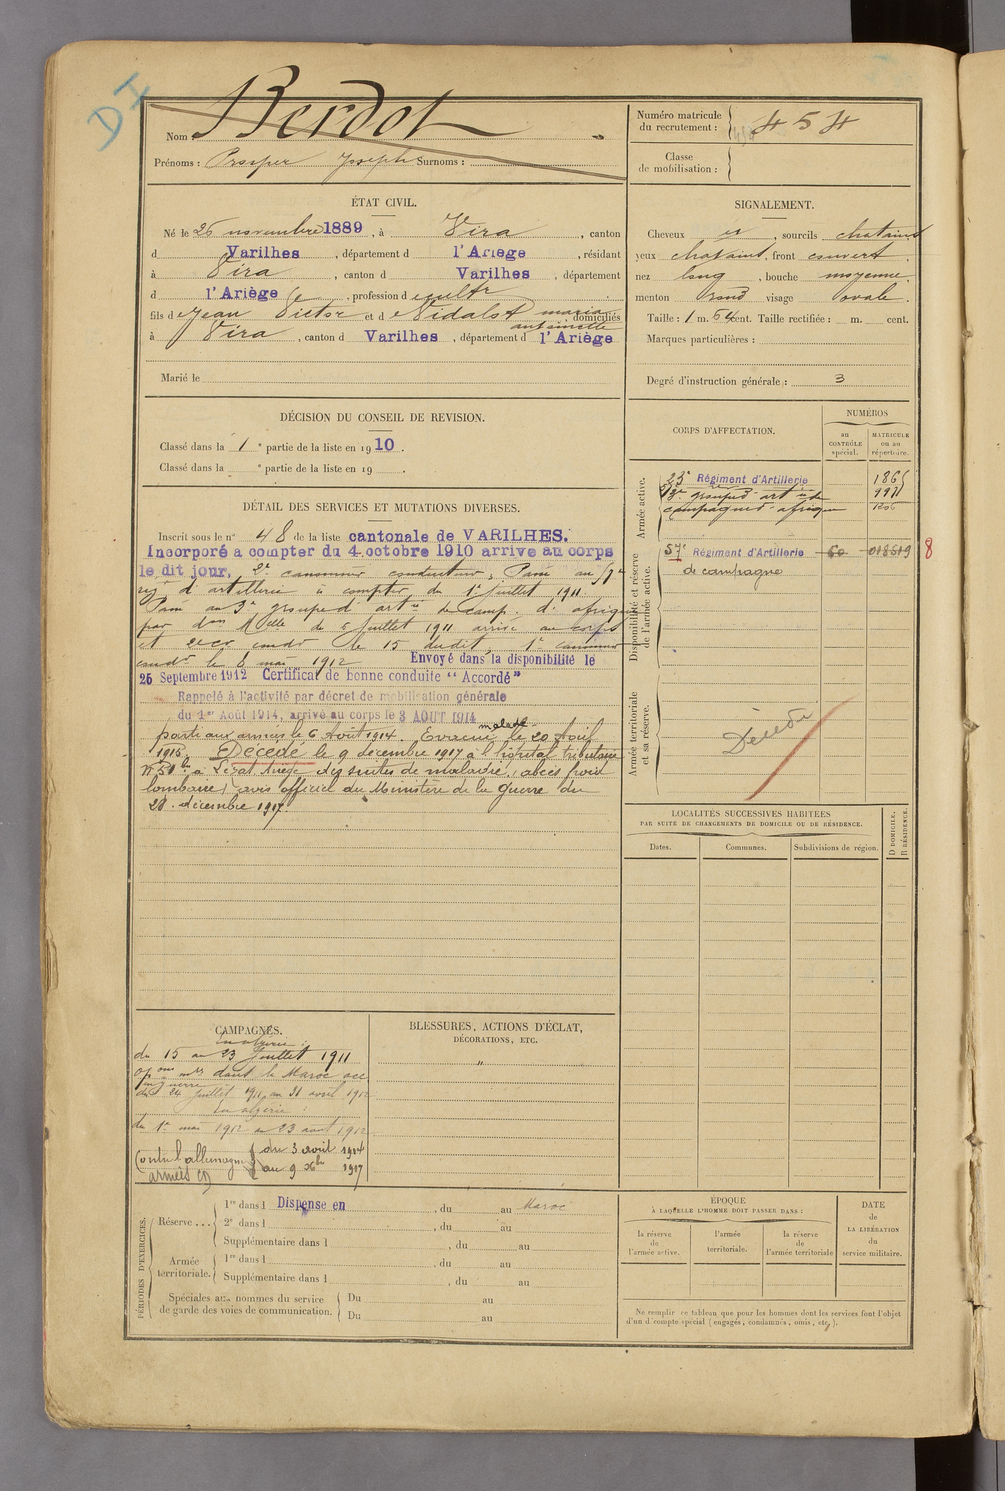 DI
Nom : Berdot
Prénoms : Prosper Joseph Surnoms :
Numéro matricule du recrutement : 454
Classe de mobilisation :
ÉTAT CIVIL.
Né le 26 novembre 1889, à Vira, canton
d Varilhes, département d l'Ariege, résidant
à Vira, canton d Varilhes, département
d l'Ariège, profession d cultr
fils de Jean Victor et de Vidalot maria antoinette domiciliés
à Vira, canton d Varilhes, département d l'Ariège
Marié le
SIGNALEMENT.
Cheveux et, sourcils chatains
yeux chatains, front couvert
nez long, bouche moyenne
menton rond visage ovale.
Taille : 1 m. 54 cent. Taille rectifiée : m. cent.
Marques particulières :
Degré d'instruction générale : 3
DÉCISION DU CONSEIL DE REVISION.
Classé dans la 1e partie de la liste en 1910.
Classé dans la e partie de la liste en 19 .
CORPS D'AFFECTATION.
NUMÉROS
au CONTRÔLE spécial.
MATRICULE ou au répertoire.
Armée active.
23e Régiment d'Artillerie 1865
3e groupe d'artie de 9971
campagne d'afrique
Disponibilité et réserve de l'armée active.
57e Régiment d'Artillerie 60 018519 8
de campagne
Armée territoriale et sa réserve.
Décédé
DÉTAIL DES SERVICES ET MUTATIONS DIVERSES.
Inscrit sous le n° 48 de la liste cantonale de VARILHES.
Incorporé a compter du 4 octobre 1910 arrive au corps
le dit jour, 2e canonnier conducteur, Passé au 57e
rég d'artillerie à compter du 1er Juillet 1911.
Passé au 3e groupe d'artie de camp. d'afrique
par don Melle du 5 Juillet 1911 arrivé au corps
et 2e cr condr le 15 dudit, 1er canonnier
condr le 8 mai 1912 Envoyé dans la disponibilité le
25 Septembre 1912 Certificat de bonne conduite "Accordé"
Rappelé à l'activité par décret de mobilisation générale
du 1er Août 1914, arrivé au corps le 3 AOUT 1914
parti aux armées le 6 Août 1914. Evacué malade le 20 Août
1915. Décédé le 9 décembre 1917 à l'hôpital tributaire
N° 50 à Lézat Ariège des suites de maladie, (abcès froid
lombaire) avis officiel du Ministère de la guerre du
28 décembre 1917.
LOCALITÉS SUCCESSIVES HABITÉES
PAR SUITE DE CHANGEMENTS DE DOMICILE OU DE RÉSIDENCE.
Dates. Communes. Subdivisions de région. D DOMICILE. R RÉSIDENCE.
CAMPAGNES.
En algérie :
du 15 au 23 Juillet 1911
opons mres dans le Maroc occ
en guerre
du 24 Juillet 1911 au 31 avril 1912
En algérie :
du 1er mai 1912 au 23 août 1912
Contre l'allemagne du 3 août 1914
armées au 9 Xbre 1917
BLESSURES, ACTIONS D'ÉCLAT,
DÉCORATIONS, ETC.
"
PÉRIODES D'EXERCICES.
Réserve ... 1re dans l Dispense en , du au Maroc
2e dans l , du au
Supplémentaire dans l , du au
Armée territoriale. 1re dans l , du au
Supplémentaire dans l , du au
Spéciales aux hommes du service de garde des voies de communication. Du au
Du au
ÉPOQUE
À LAQUELLE L'HOMME DOIT PASSER DANS :
la réserve de l'armée active.
l'armée territoriale.
la réserve de l'armée territoriale
DATE de LA LIBÉRATION du service militaire.
Ne remplir ce tableau que pour les hommes dont les services font l'objet
d'un décompte spécial (engagés, condamnés, omis, etc.).